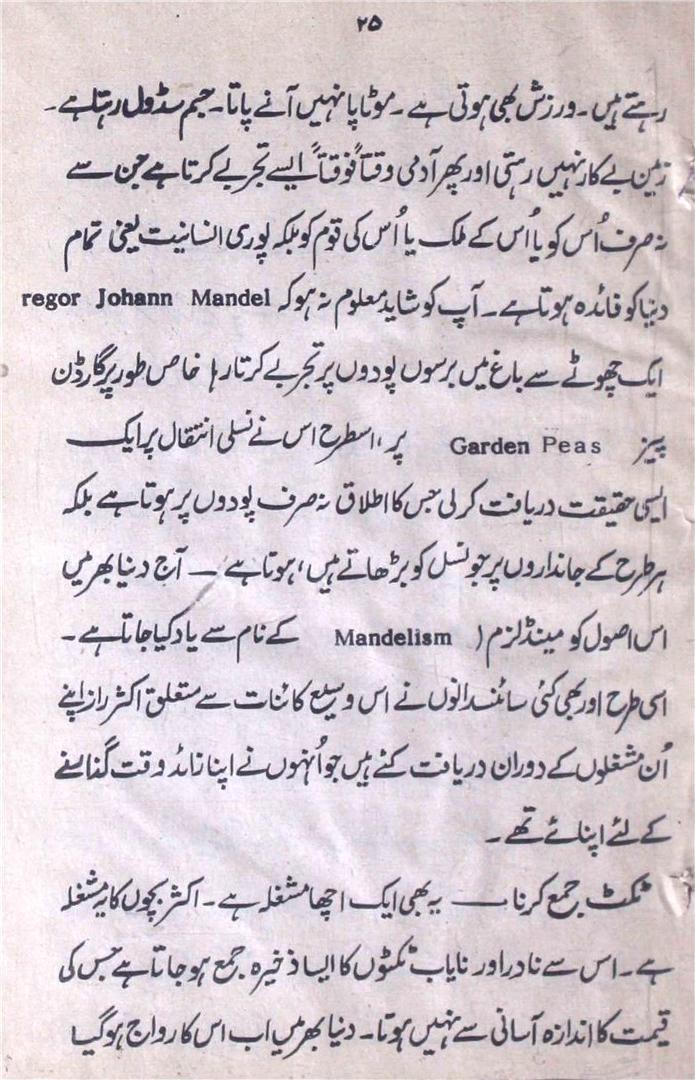 ۲۵
رہتے ہیں۔ ورزش بھی ہوتی ہے۔ موٹاپا نہیں آنے پاتا۔ جسم سڈول رہتا ہے۔
زمین بے کار نہیں رہتی اور پھر آدمی وقتاً فوقتاً ایسے تجربے کرتا ہے جن سے
نہ صرف اُس کو یا اُس کے ملک یا اُس کی قوم کو بلکہ پوری انسانیت یعنی تمام
دنیا کو فائدہ ہوتا ہے۔ آپ کو شاید معلوم نہ ہو کہ regor Johann Mandel
ایک چھوٹے سے باغ میں برسوں پودوں پر تجربے کرتا رہا خاص طور پر گارڈن
پیز Garden Peas پر، اسطرح اس نے نسلی انتقال پر ایک
ایسی حقیقت دریافت کرلی جس کا اطلاق نہ صرف پودوں پر ہوتا ہے بلکہ
ہر طرح کے جانداروں پر جو نسل کو بڑھاتے ہیں، ہوتا ہے — آج دنیا بھر میں
اس اصول کو مینڈلزم ( Mandelism کے نام سے یاد کیا جاتا ہے۔
اسی طرح اور بھی کئی سائنسدانوں نے اس وسیع کائنات سے متعلق اکثر راز اپنے
اُن مشغلوں کے دوران دریافت کئے ہیں جو اُنہوں نے اپنا زائد وقت گذارنے
کے لئے اپنائے تھے۔
ٹکٹ جمع کرنا — یہ بھی ایک اچھا مشغلہ ہے۔ اکثر بچوں کا یہ مشغلہ
ہے۔ اس سے نادر اور نایاب ٹکٹوں کا ایسا ذخیرہ جمع ہو جاتا ہے جس کی
قیمت کا اندازہ آسانی سے نہیں ہوتا۔ دنیا بھر میں اب اس کا رواج ہو گیا